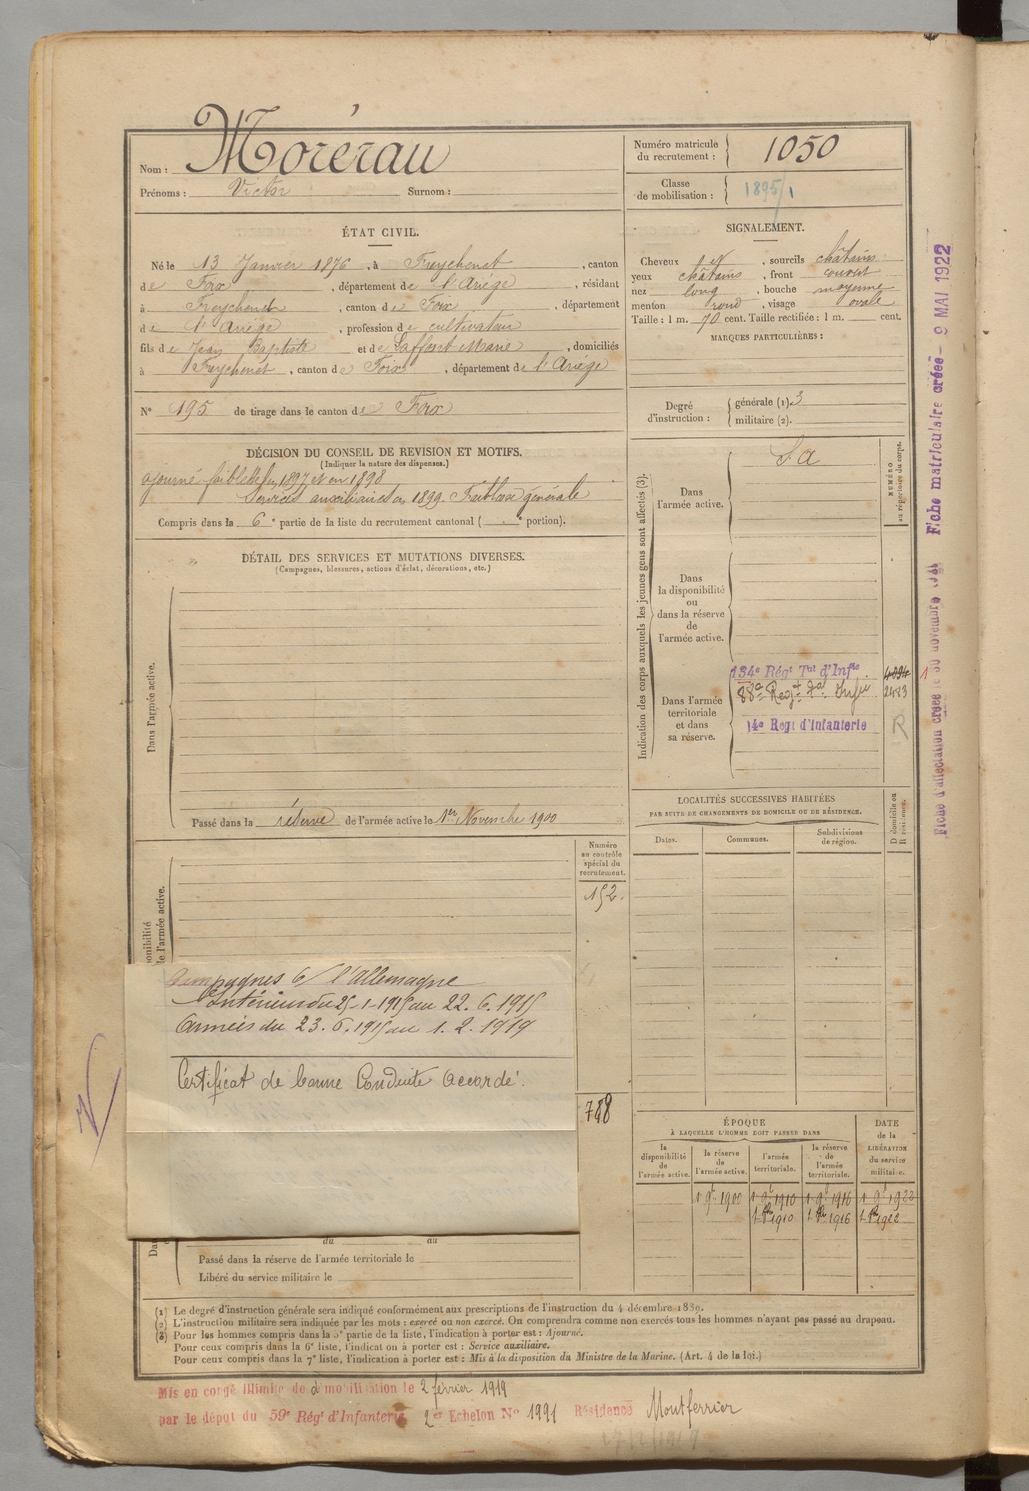 Nom : Morérau
Prénoms : Victor Surnom :
Numéro matricule du recrutement : 1050
Classe de mobilisation : 1895/1
ÉTAT CIVIL.
Né le 13 Janvier 1876, à Freychenet, canton
de Foix, département de l'Ariège, résidant
à Freychenet, canton de Foix, département
de l'Ariège, profession de cultivateur
fils de Jean Baptiste et de Laffont Marie, domiciliés
à Freychenet, canton de Foix, département de l'Ariège
N° 195 de tirage dans le canton de Foix
SIGNALEMENT.
Cheveux et, sourcils châtains
yeux châtains, front couvert
nez long, bouche moyenne
menton rond, visage ovale
Taille : 1 m. 70 cent. Taille rectifiée : 1 m. cent.
MARQUES PARTICULIÈRES :
Degré d'instruction : générale (1) 3
militaire (2).
DÉCISION DU CONSEIL DE REVISION ET MOTIFS.
(Indiquer la nature des dispenses.)
ajourné faiblesse en 1897 et en 1898
Services auxiliaires en 1899. Faiblesse générale
Compris dans la 6e partie de la liste du recrutement cantonal ( e portion).
DÉTAIL DES SERVICES ET MUTATIONS DIVERSES.
(Campagnes, blessures, actions d'éclat, décorations, etc.)
Dans l'armée active.
Passé dans la réserve de l'armée active le 1er Novembre 1900
Indication des corps auxquels les jeunes gens sont affectés (3).
NUMÉRO au répertoire du corps.
Dans l'armée active.
S a
Dans la disponibilité ou dans la réserve de l'armée active.
Dans l'armée territoriale et dans sa réserve.
134e Régt Tal d'Infie 4094
88e Regt Tal Infie 2483
14e Regt d'Infanterie R
LOCALITÉS SUCCESSIVES HABITÉES
PAR SUITE DE CHANGEMENTS DE DOMICILE OU DE RÉSIDENCE.
Dates. Communes. Subdivisions de région. D domicile ou R résidence.
Numéro au contrôle spécial du recrutement.
152.
788
ponibilité
e l'armée active.
Campagnes c/ l'Allemagne
Intérieur du 25-1-1915 au 22.6.1915
Armées du 23.6.1915 au 1.2.1919
Certificat de bonne Conduite accordé.
du au
Passé dans la réserve de l'armée territoriale le
Libéré du service militaire le
ÉPOQUE
À LAQUELLE L'HOMME DOIT PASSER DANS
la disponibilité de l'armée active. la réserve de l'armée active. l'armée territoriale. la réserve de l'armée territoriale.
DATE de la LIBÉRATION du service militaire.
1 9b 1900 1 9b 1910 1 9b 1916 1 9b 1922
1 8bre 1910 1 8bre 1916 1 8bre 1922
(1) Le degré d'instruction générale sera indiqué conformément aux prescriptions de l'instruction du 4 décembre 1889.
(2) L'instruction militaire sera indiquée par les mots : exercé ou non exercé. On comprendra comme non exercés tous les hommes n'ayant pas passé au drapeau.
(3) Pour les hommes compris dans la 5e partie de la liste, l'indication à porter est : Ajourné.
Pour ceux compris dans la 6e liste, l'indication à porter est : Service auxiliaire.
Pour ceux compris dans la 7e liste, l'indication à porter est : Mis à la disposition du Ministre de la Marine. (Art. 4 de la loi.)
Mis en congé illimité de dé mobilisation le 2 février 1919
par le dépot du 59e Régt d'Infanterie 2e Echelon N° 1991 Résidence Montferrier
Fiche matriculaire créée - 9 MAI 1922